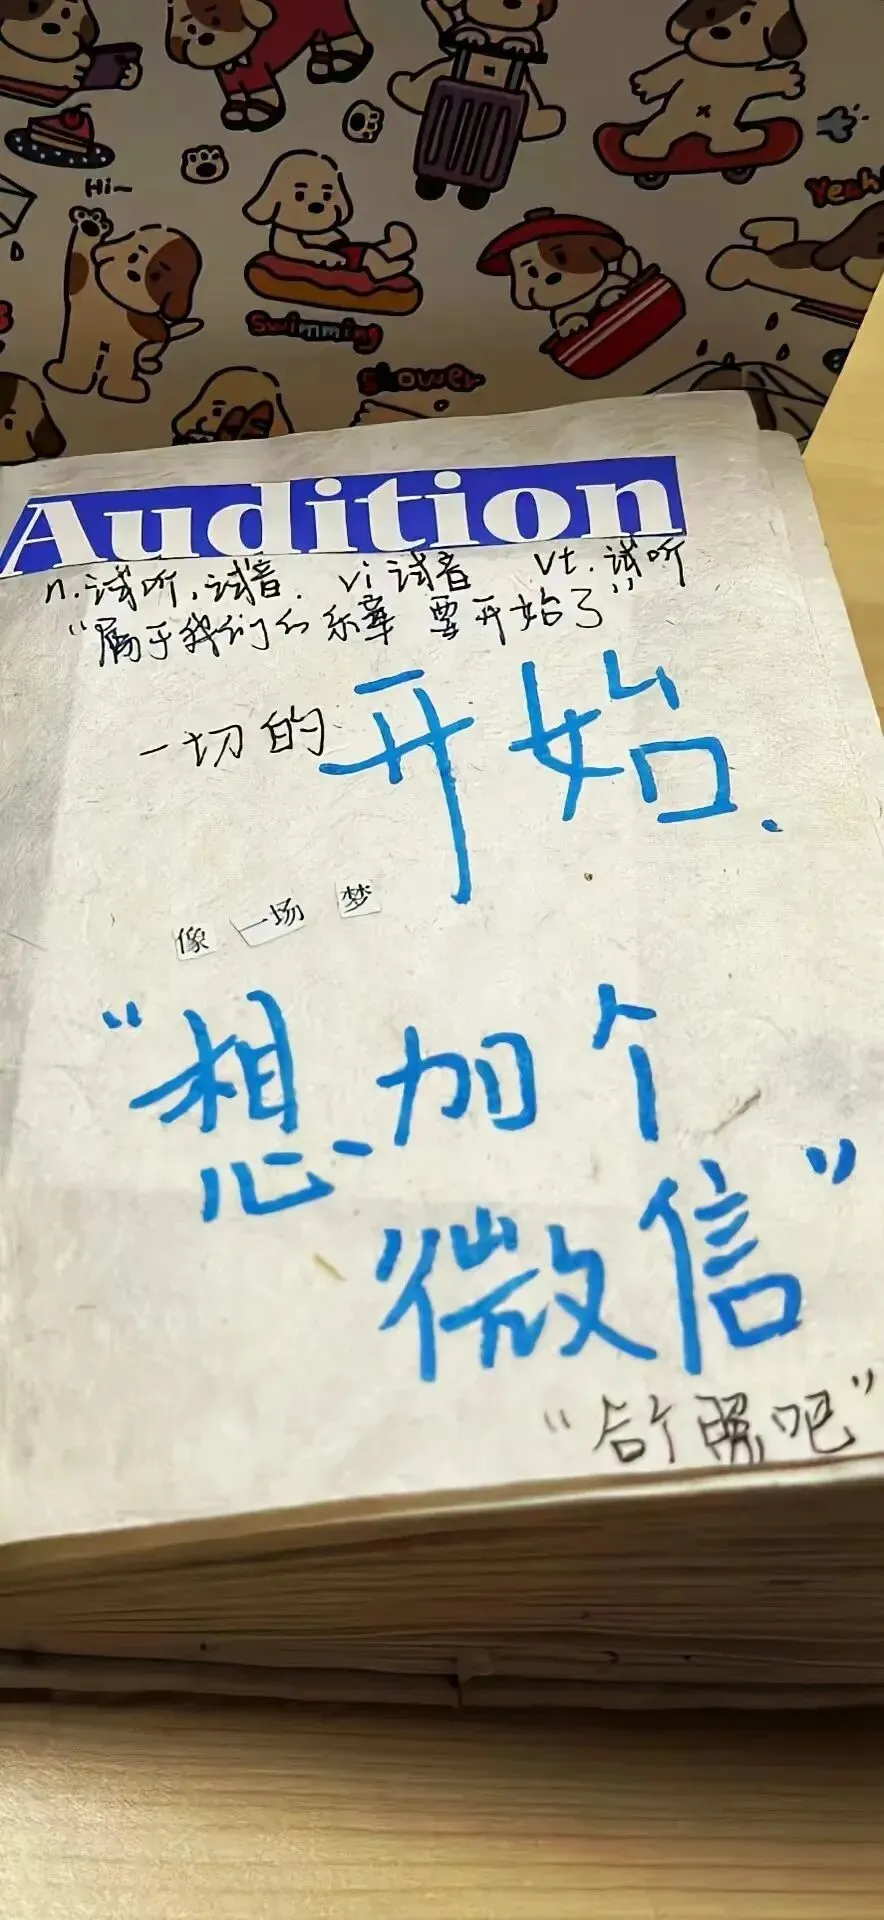 Hi~
Yeah!
Swimming
shower
Audition
n.试听,试音. vi 试音 vt.试听
“属于我们的乐章 要开始了”
一切的开始.
像 一场 梦
“想加个
微信”
“合个照吧”